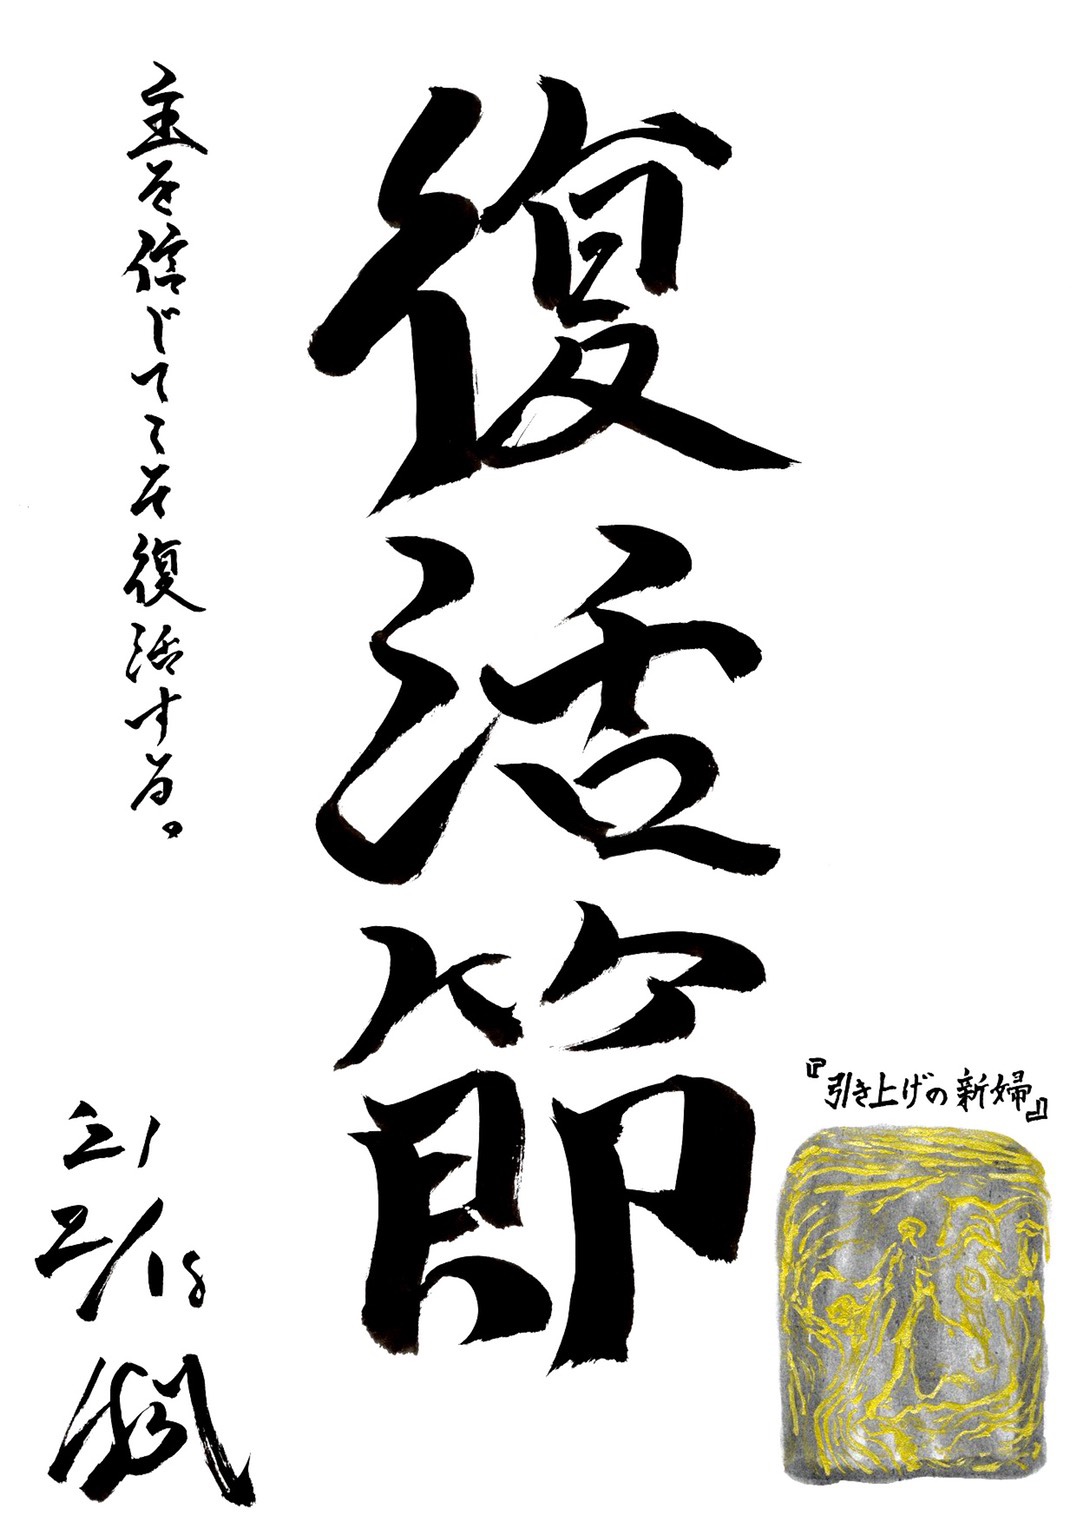 『引き上げの新婦』
復活節
主を信じてこそ復活する。
21
2/18